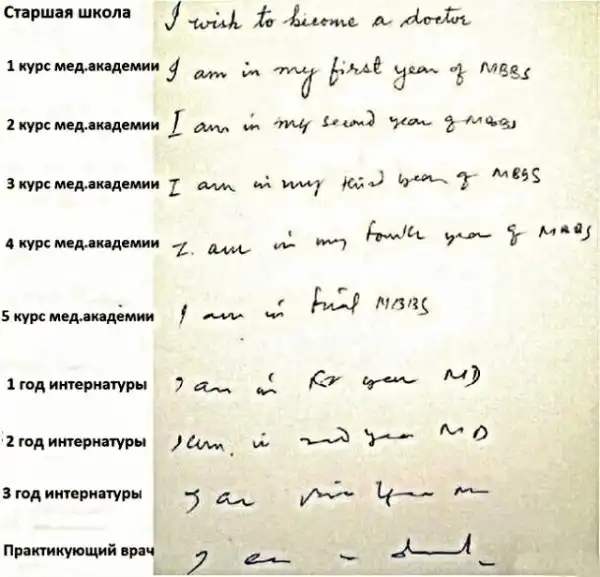 Старшая школа I wish to become a doctor
1 курс мед.академии I am in my first year of MBBS
2 курс мед.академии I am in my second year of MBBS
3 курс мед.академии I am in my third year of MBBS
4 курс мед.академии I am in my fourth year of MBBS
5 курс мед.академии I am in final MBBS
1 год интернатуры I am in year MD
2 год интернатуры I am in 2nd year MD
3 год интернатуры I am year
Практикующий врач I am a